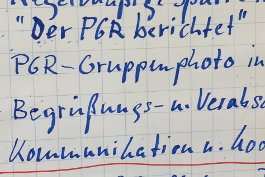 "Der PGR berichtet"
PGR-Gruppenphoto in
Begrüßungs- u. Verabs
Kommunikation u. Koo